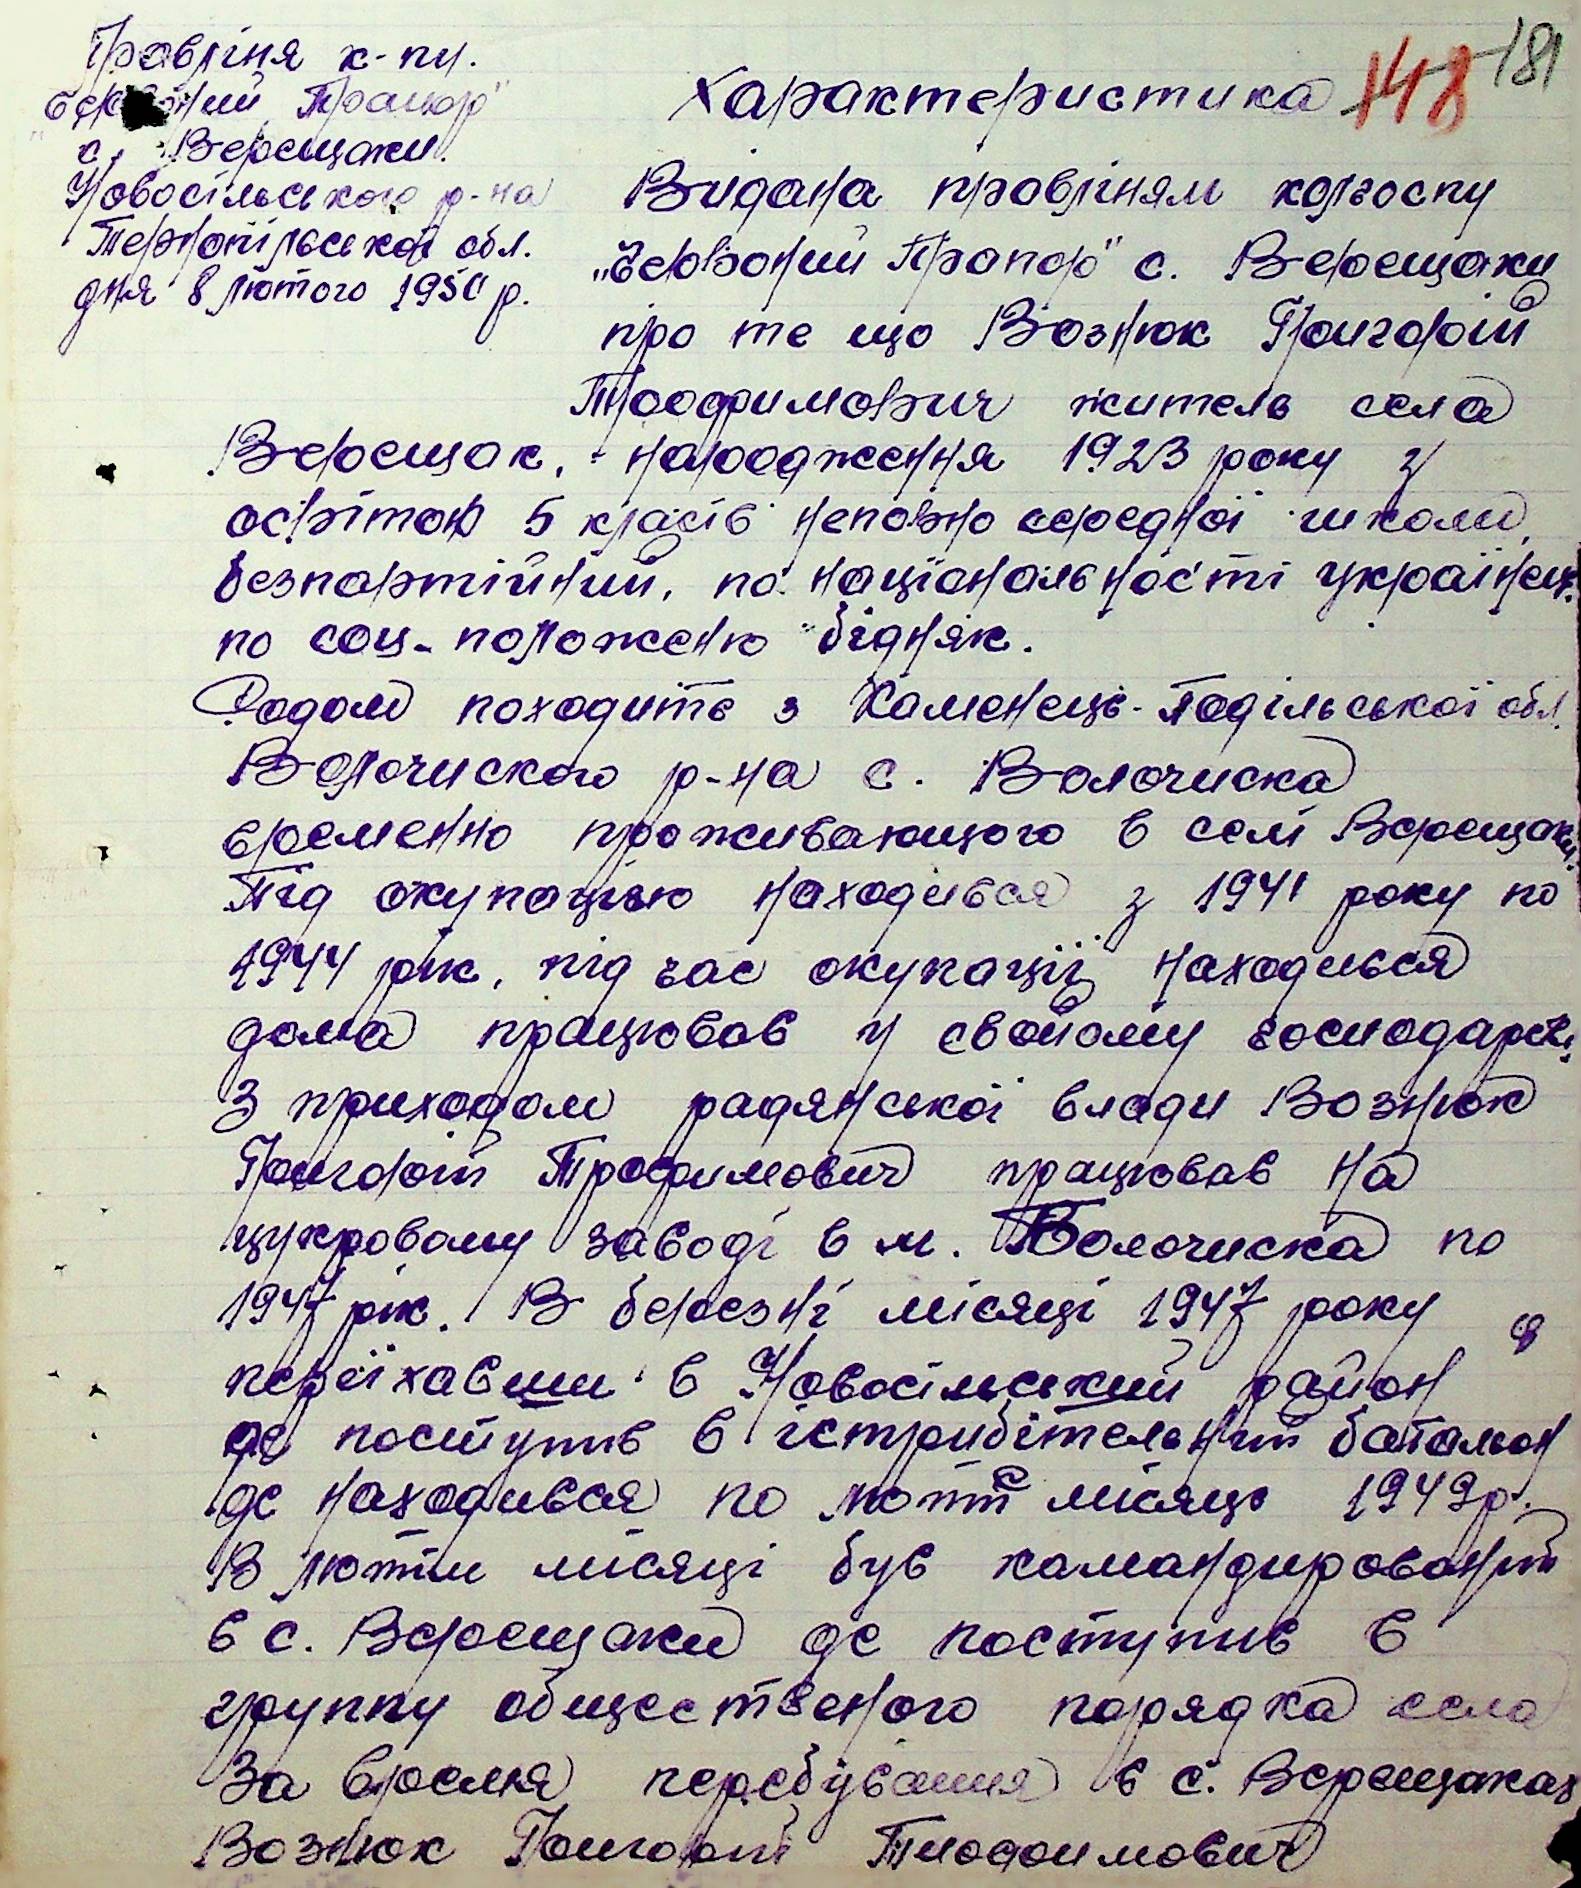 Правліня к-пу.
"Червоний Прапор"
с. Верещаки.
Новосільського р-на
Тернопільської обл.
дня 8 лютого 1950 р.
148 181
Характеристика
Видана правліням колгоспу
"Червоний Прапор" с. Верещаки
про те що Вознюк Григорій
Трофимович житель села
Верещак, народження 1923 року з
освітою 5 класів неповно середної школи,
безпартійний, по національності українец.
по соц-положеню бідняк.
Родом походить з Каменець-Подільської обл.
Волочиского р-на с. Волочиска
временно проживающого в селі Верещаки.
Під окупацією находився з 1941 року по
1944 рік, під час окупації находився
дома працював у свойому господарстві.
З приходом радянської влади Вознюк
Григорій Трофимович працював на
цукровому заводі в м. Волочиска по
1947 рік. В березні місяці 1947 року
переїхавши в Новосільський район
де поступив в істрибітельний батальон
де находився по лютий місяць 1949 р.
В лютім місяці був камандированій
в с. Верещаки де поступив в
группу общественого порядка села
За время перебування в с. Верещаках
Вознюк Григорій Трофимович